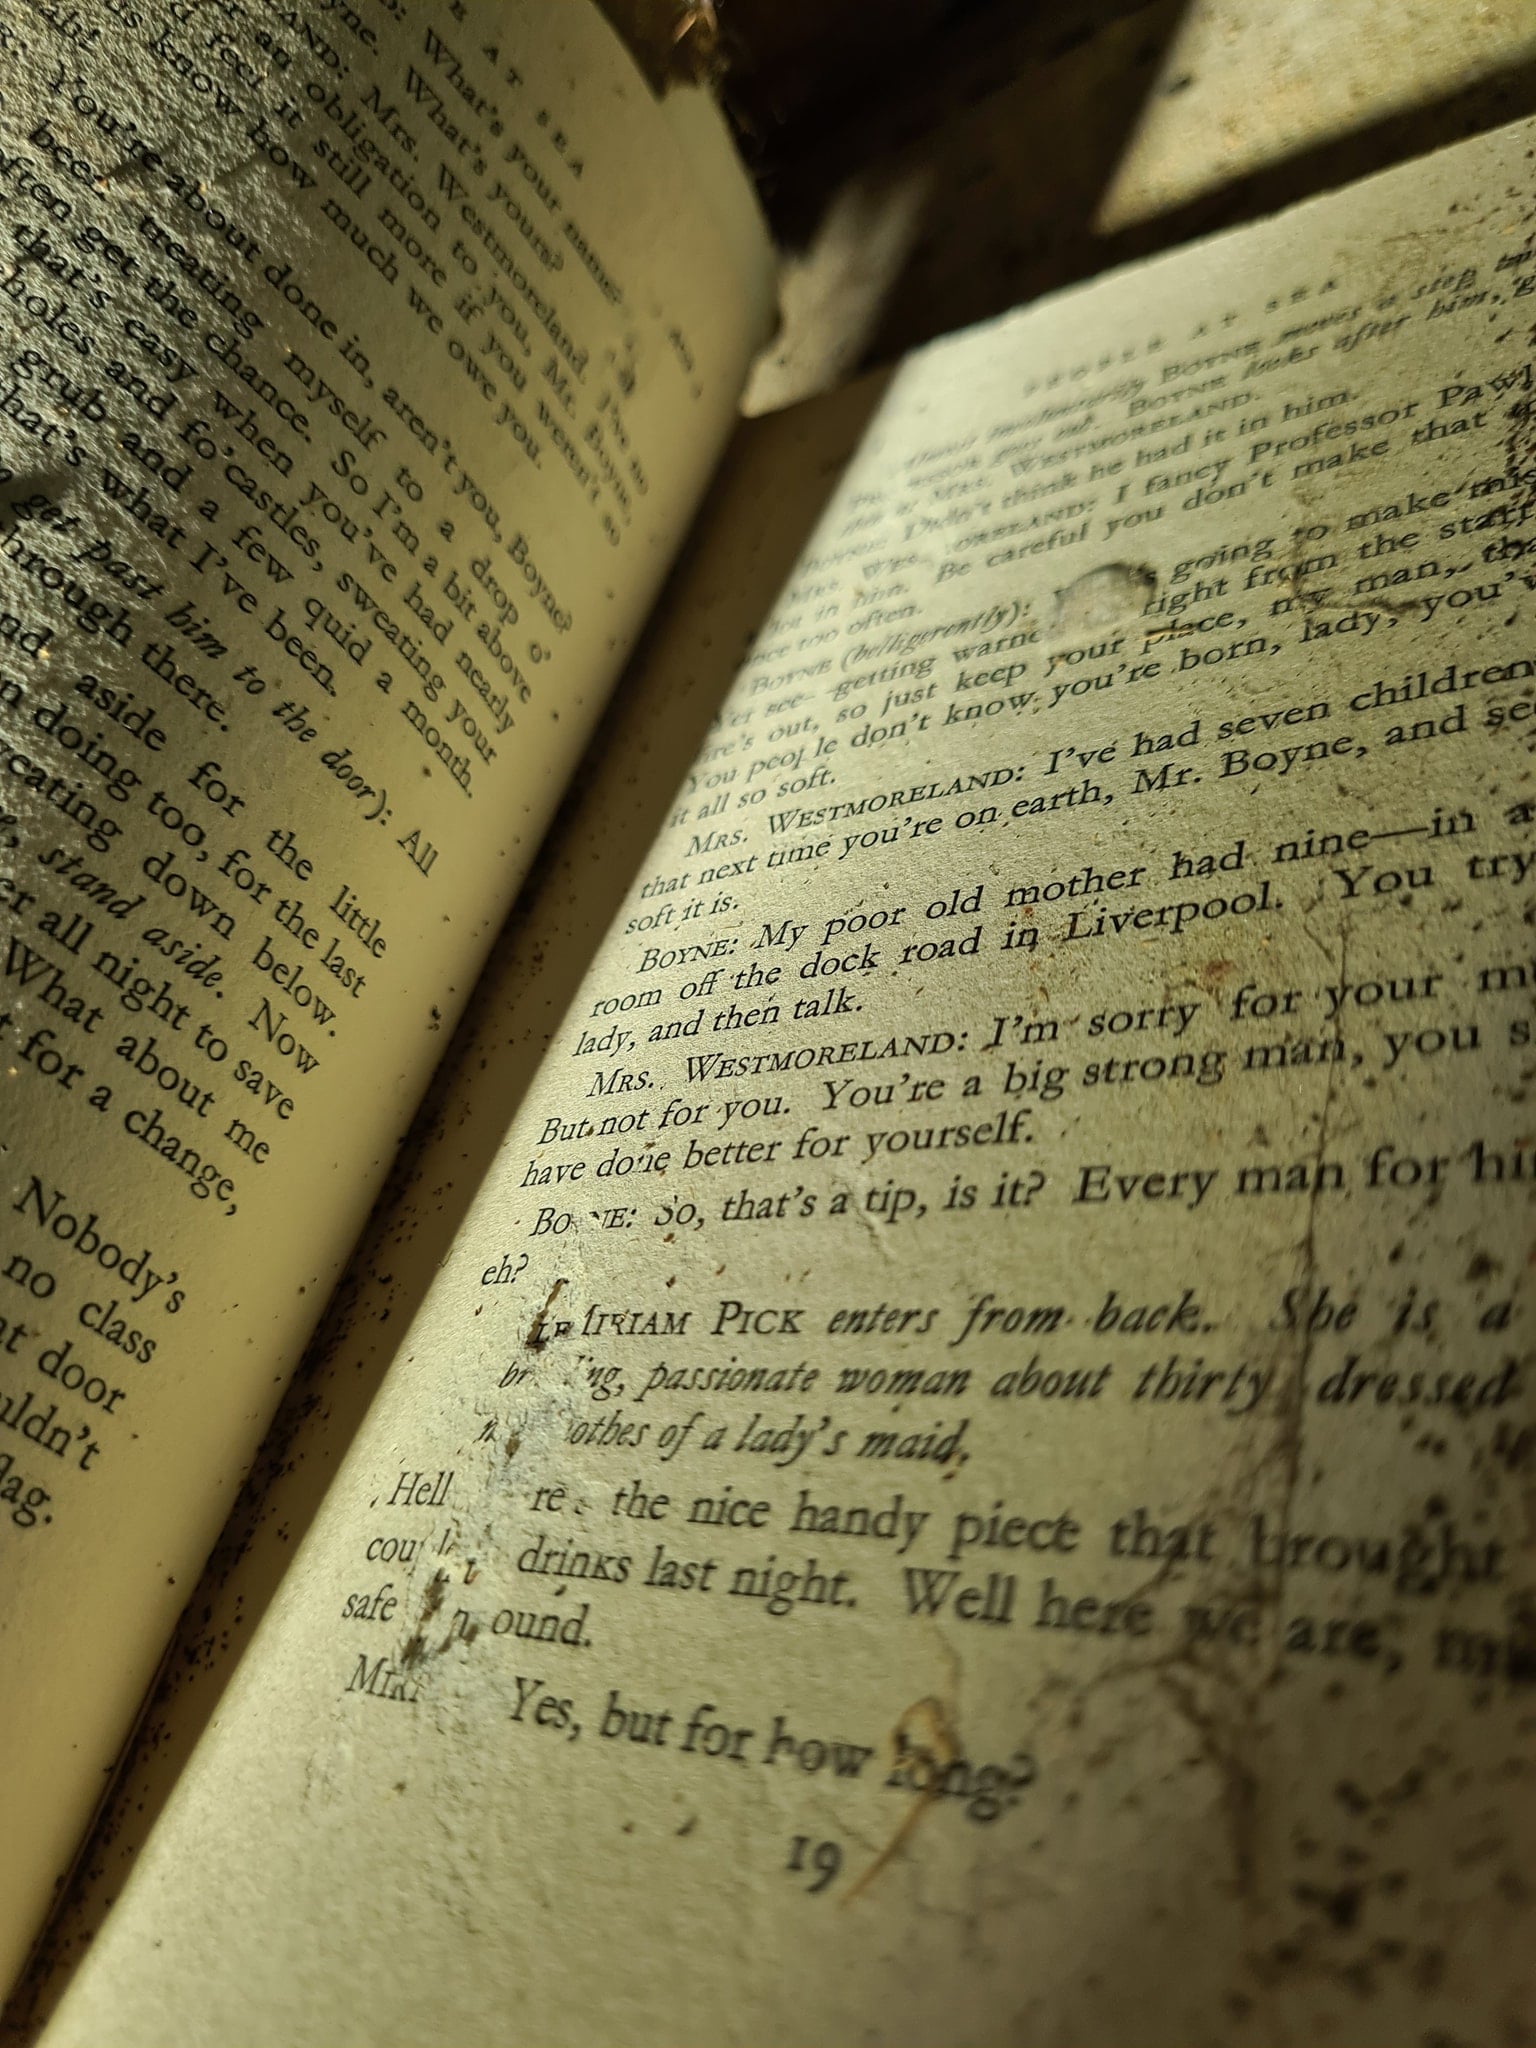 E AT SEA
What's your name?
yne. What's yours?
LAND: Mrs. Westmoreland. I've no
an obligation to you, Mr. Boyne,
d feel it still more if you weren't so
us know how much we owe you.
You're about done in, aren't you, Boyne?
been treating myself to a drop o'
often get the chance. So I'm a bit above
that's easy when you've had nearly
holes and fo'castles, sweating your
grub and a few quid a month.
hat's what I've been.
get past him to the door): All
hrough there.
nd aside for the little
n doing too, for the last
eating down below.
stand aside. Now
er all night to save
What about me
t for a change,
Nobody's
no class
at door
uldn't
lag.
PEOPLE AT SEA
BOYNE moves a step
BOYNE looks after him,
MRS. WESTMORELAND.
Didn't think he had it in him.
MRS. WES ORELAND: I fancy Professor Pawl
in him. Be careful you don't make that
too often.
BOYNE (belligerently): 's going to make mis
see—getting warne right from the start
out, so just keep your place, my man,
You people don't know you're born, lady, you'v
it all so soft.
MRS. WESTMORELAND: I've had seven children
that next time you're on earth, Mr. Boyne, and see
soft it is.
BOYNE: My poor old mother had nine—in a
room off the dock road in Liverpool. You try
lady, and then talk.
MRS. WESTMORELAND: I'm sorry for your m
But not for you. You're a big strong man, you s
have done better for yourself.
BOYNE: So, that's a tip, is it? Every man for hi
eh?
MIRIAM PICK enters from back. She is a
br ing, passionate woman about thirty dressed
othes of a lady's maid.
Hell re the nice handy piece that brought
drinks last night. Well here we are,
safe ound.
MIRI Yes, but for how long?
19